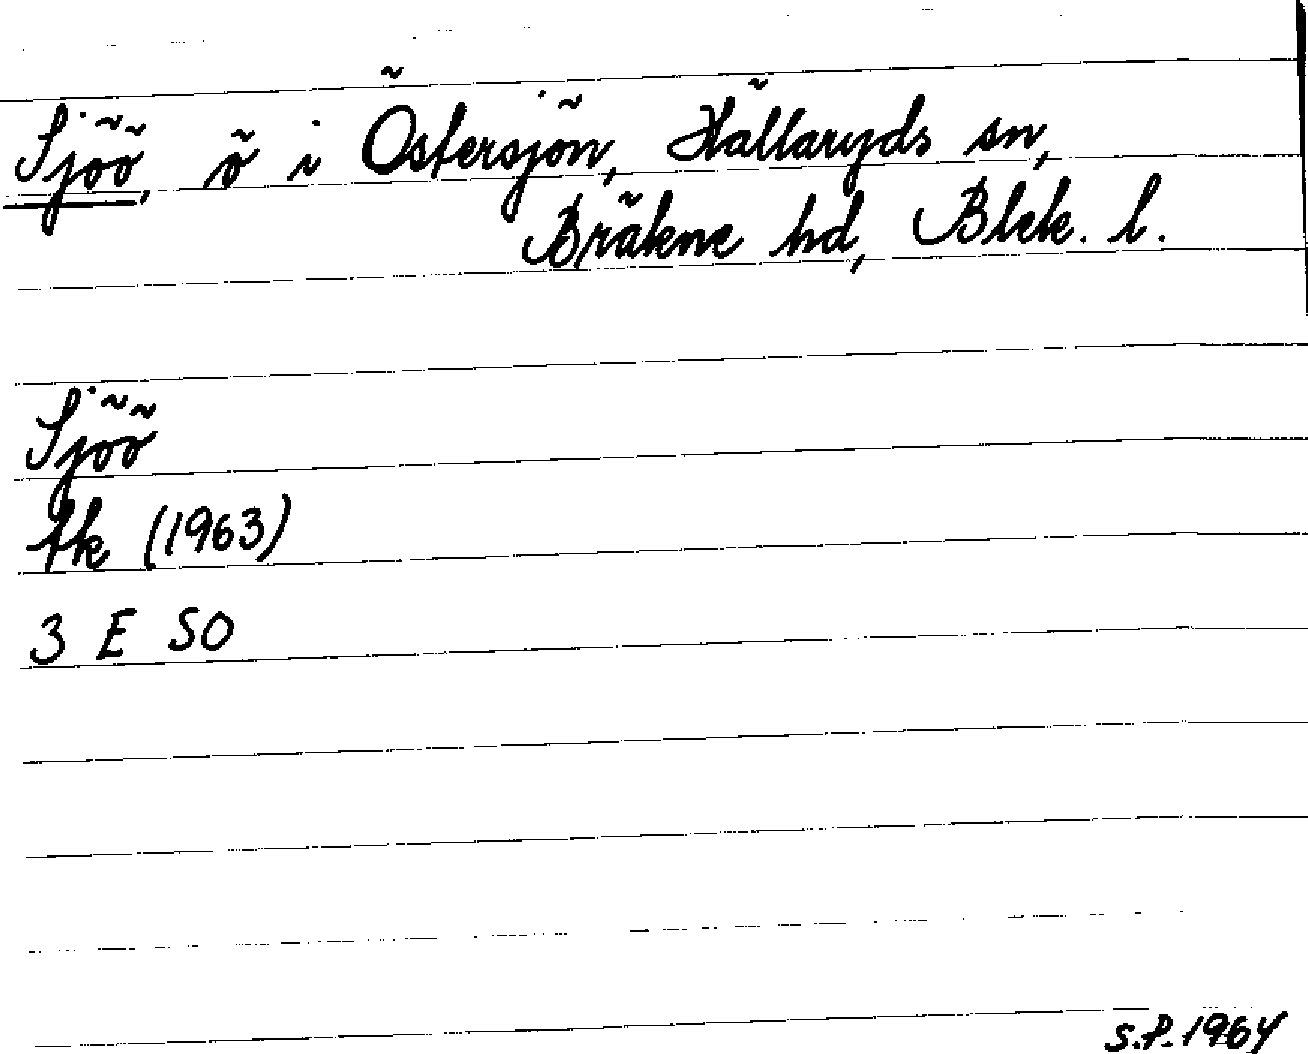 Sjöö, ö i Östersjön, Hällaryds sn,
Bräkne hd, Blek. l.
Sjöö
tk (1963)
3 E SO
S.P. 1964